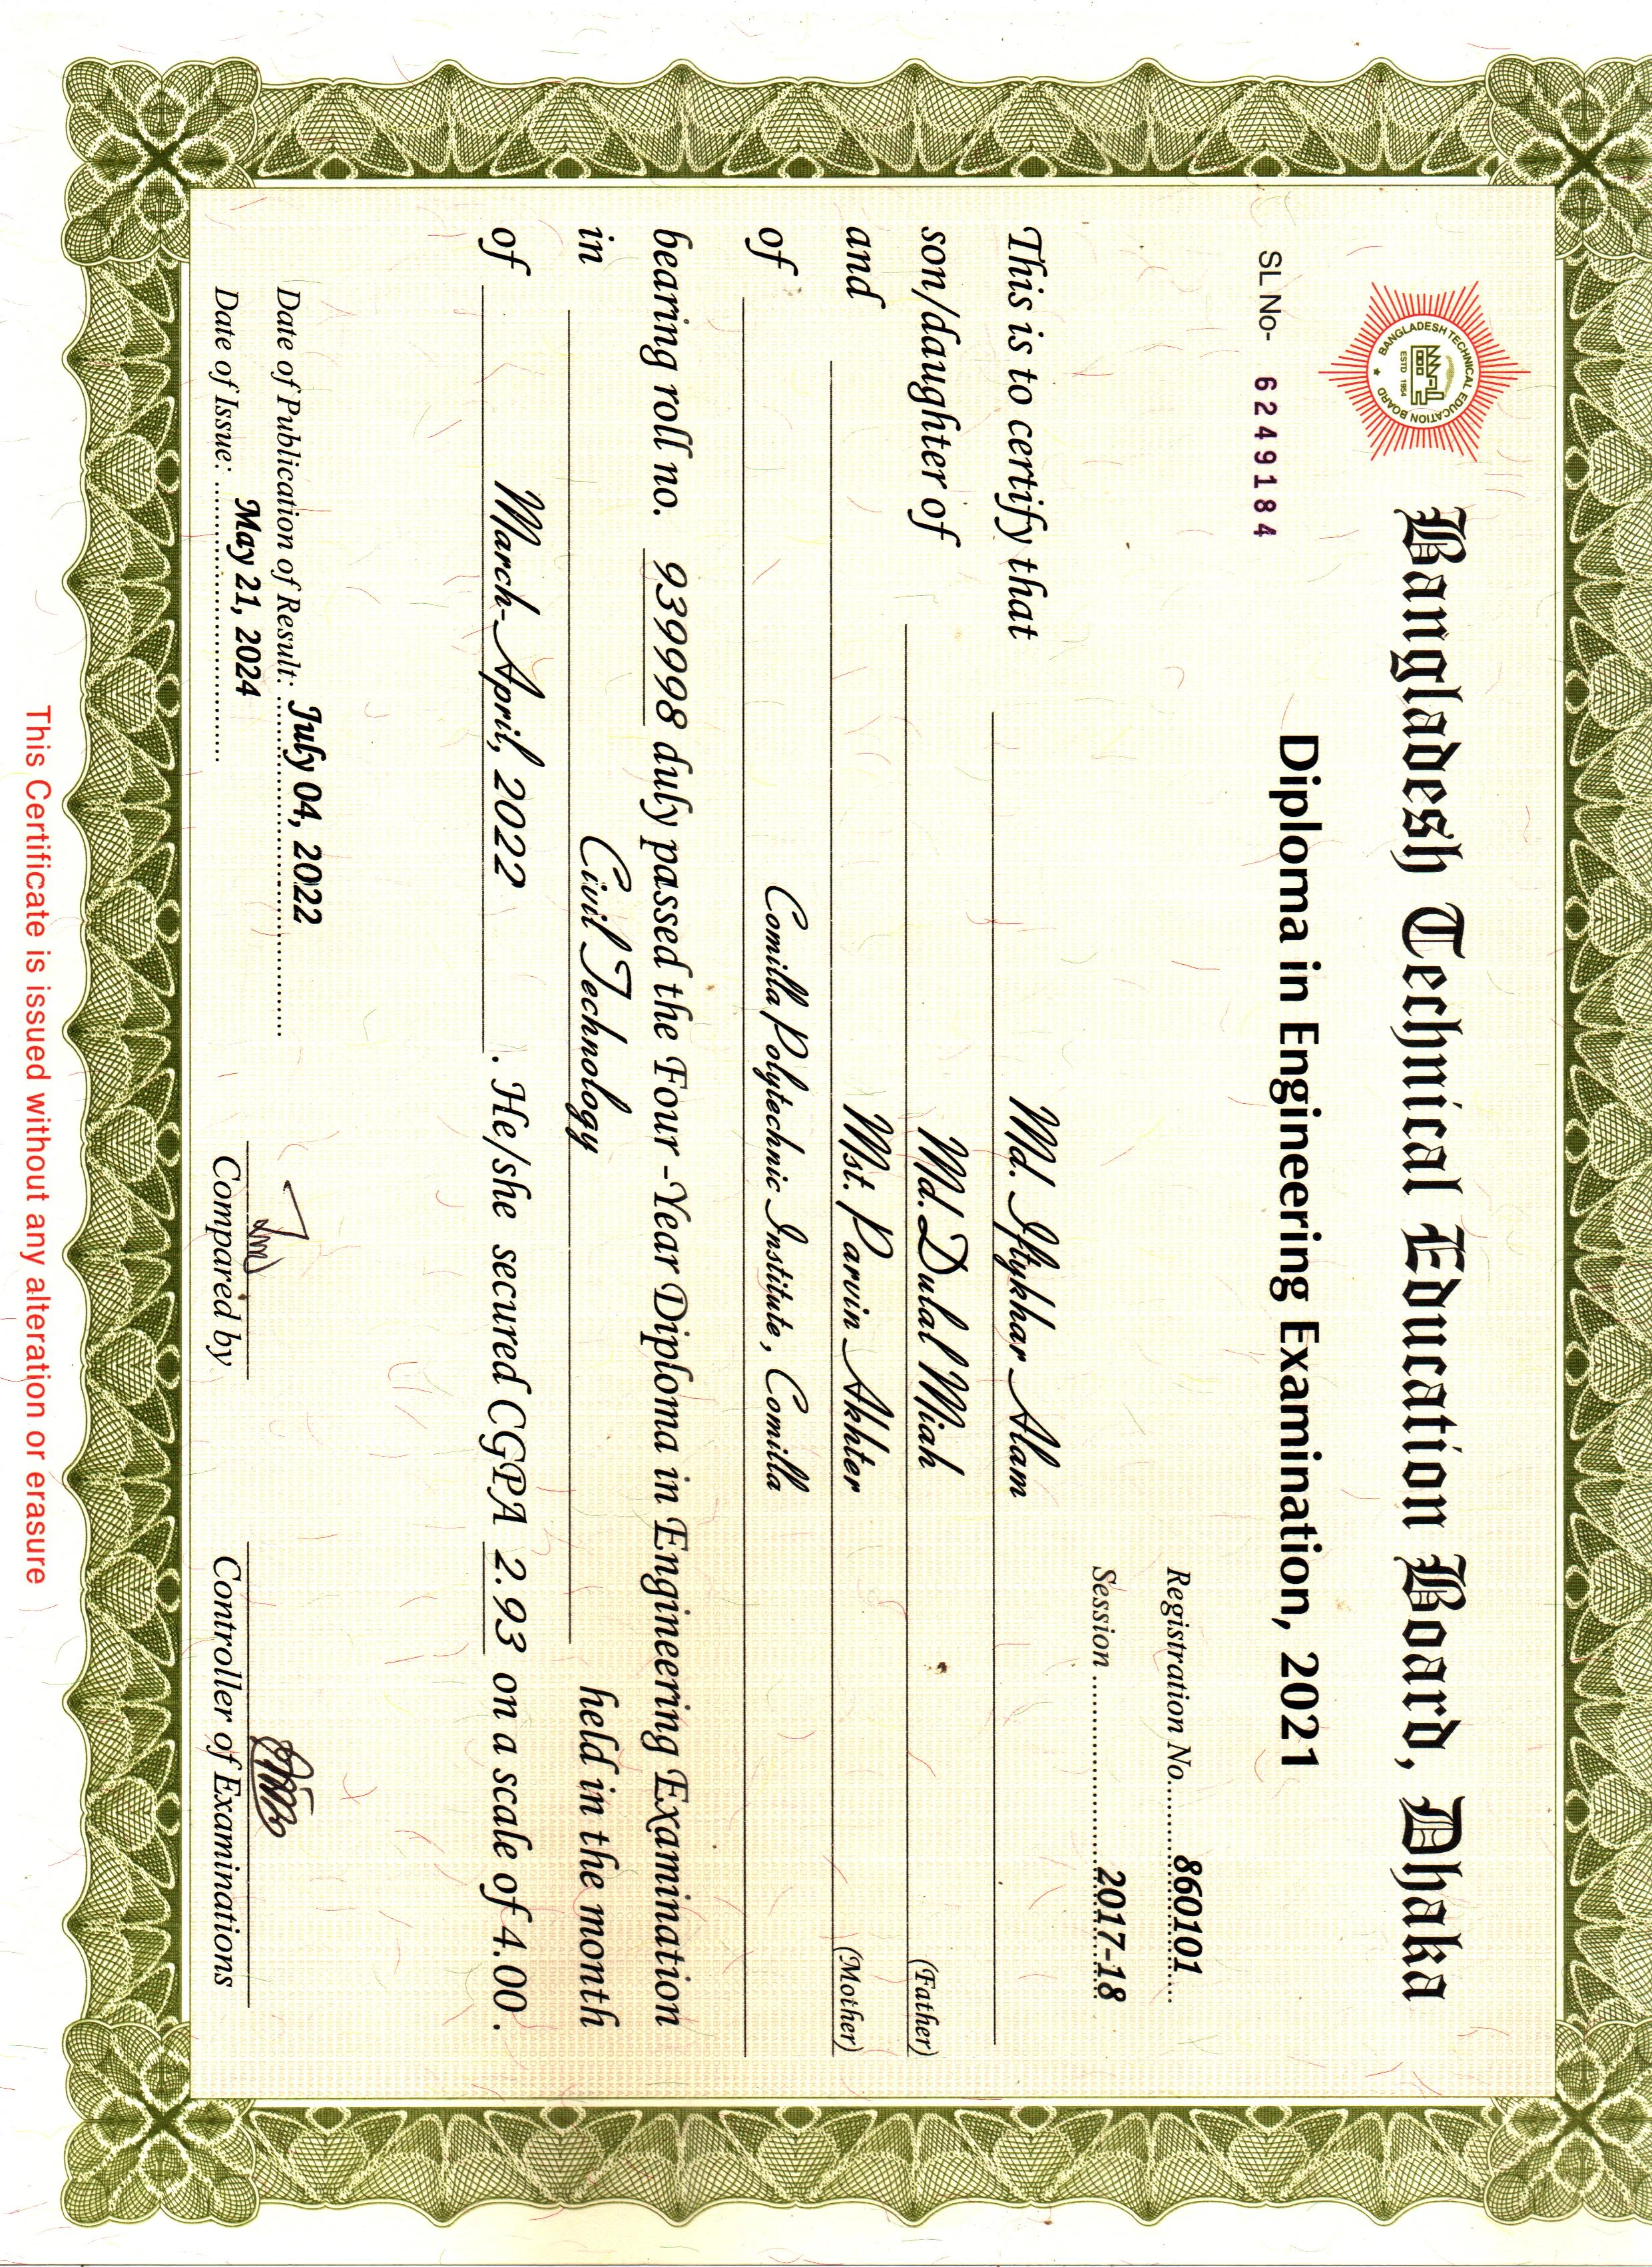 BANGLADESH TECHNICAL EDUCATION BOARD
ESTD 1954
Bangladesh Technical Education Board, Dhaka
Diploma in Engineering Examination, 2021
SL No- 6249184
Registration No. 860101
Session 2017-18
This is to certify that Md. Iftykhar Alam
son/daughter of Md. Dulal Miah (Father)
and Mst. Parvin Akhter (Mother)
of Comilla Polytechnic Institute, Comilla
bearing roll no. 939998 duly passed the Four -Year Diploma in Engineering Examination
in Civil Technology held in the month
of March-April, 2022 . He/she secured CGPA 2.93 on a scale of 4.00 .
Date of Publication of Result: July 04, 2022
Date of Issue: May 21, 2024
Compared by
Controller of Examinations
This Certificate is issued without any alteration or erasure